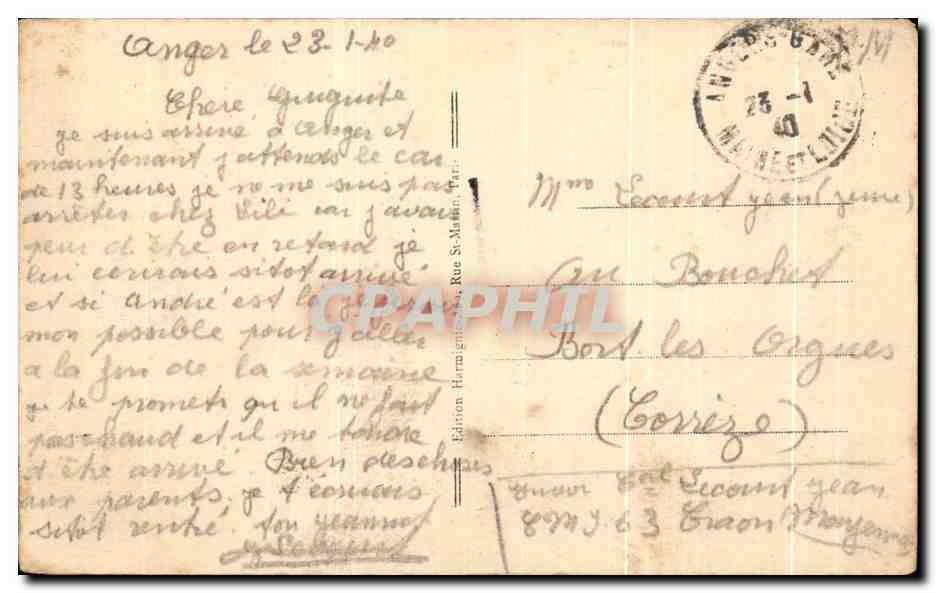 Anger le 23-1-40
Chere Guiguite
je suis arrivé a Anger et
maintenant j attends le car
de 13 heures je ne me suis pas
arrêter chez Lili car j avais
peur d être en retard je
lui écrirais sitot arrivé
et si André est la je ferais
mon possible pour y aller
a la fin de la semaine
je te promets qu il ne fait
pas chaud et il me tarde
d être arrivé Bien des choses
aux parents je t écrirais
sitot rentré. ton jeannot
ANGERS GARE
23 -1
40
MAINE ET LOIRE
Mme Lecourt jean (jeune)
Au Bouchet
Bort les Orgues
(Corrèze)
Lecourt jean
63 Craon Mayenne
Edition Rue St-Martin, Paris
CPAPHIL